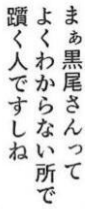 まぁ黒尾さんって
よくわからない所で
躓く人ですしね